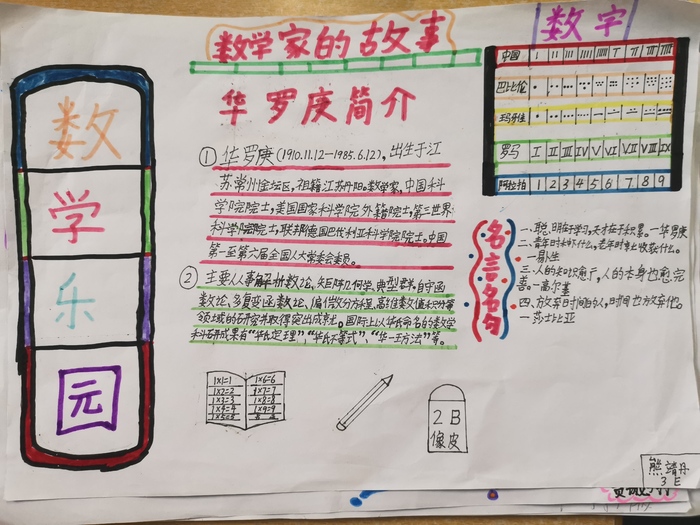 数学家的故事
数字
数
学
乐
园
华罗庚简介
①华罗庚(1910.11.12—1985.6.12),出生于江
苏常州金坛区,祖籍江苏丹阳。数学家,中国科
学院院士,美国国家科学院外籍院士,第三世界
科学院院士,联邦德国巴伐利亚科学院院士。中国
第一至第六届全国人大常委会委员。
②主要从事解析数论、矩阵几何学、典型群、自守函
数论、多复变函数论、偏微分方程、高维数值积分等
领域的研究并取得突出成就。国际上以华氏命名的数学
科研成果有“华氏定理”、“华氏不等式”、“华—王方法”等。
中国 I II III IIII IIIII T
巴比伦
玛雅
罗马 I II III IV V VI VII VIII IX
阿拉伯 1 2 3 4 5 6 7 8 9
名言名句
一、聪明在于学习,天才在于积累。—华罗庚
二、青年时种什么,老年时就收获什么。
—易卜生
三、人的知识愈广,人的本身也愈完
善。—高尔基
四、方放弃时间的人,时间也放弃他。
—莎士比亚
1×1=1 1×6=6
1×2=2 1×7=7
1×3=3 1×8=8
1×4=4 1×9=9
1×5=5
2B
橡皮
熊靖丹
3 E